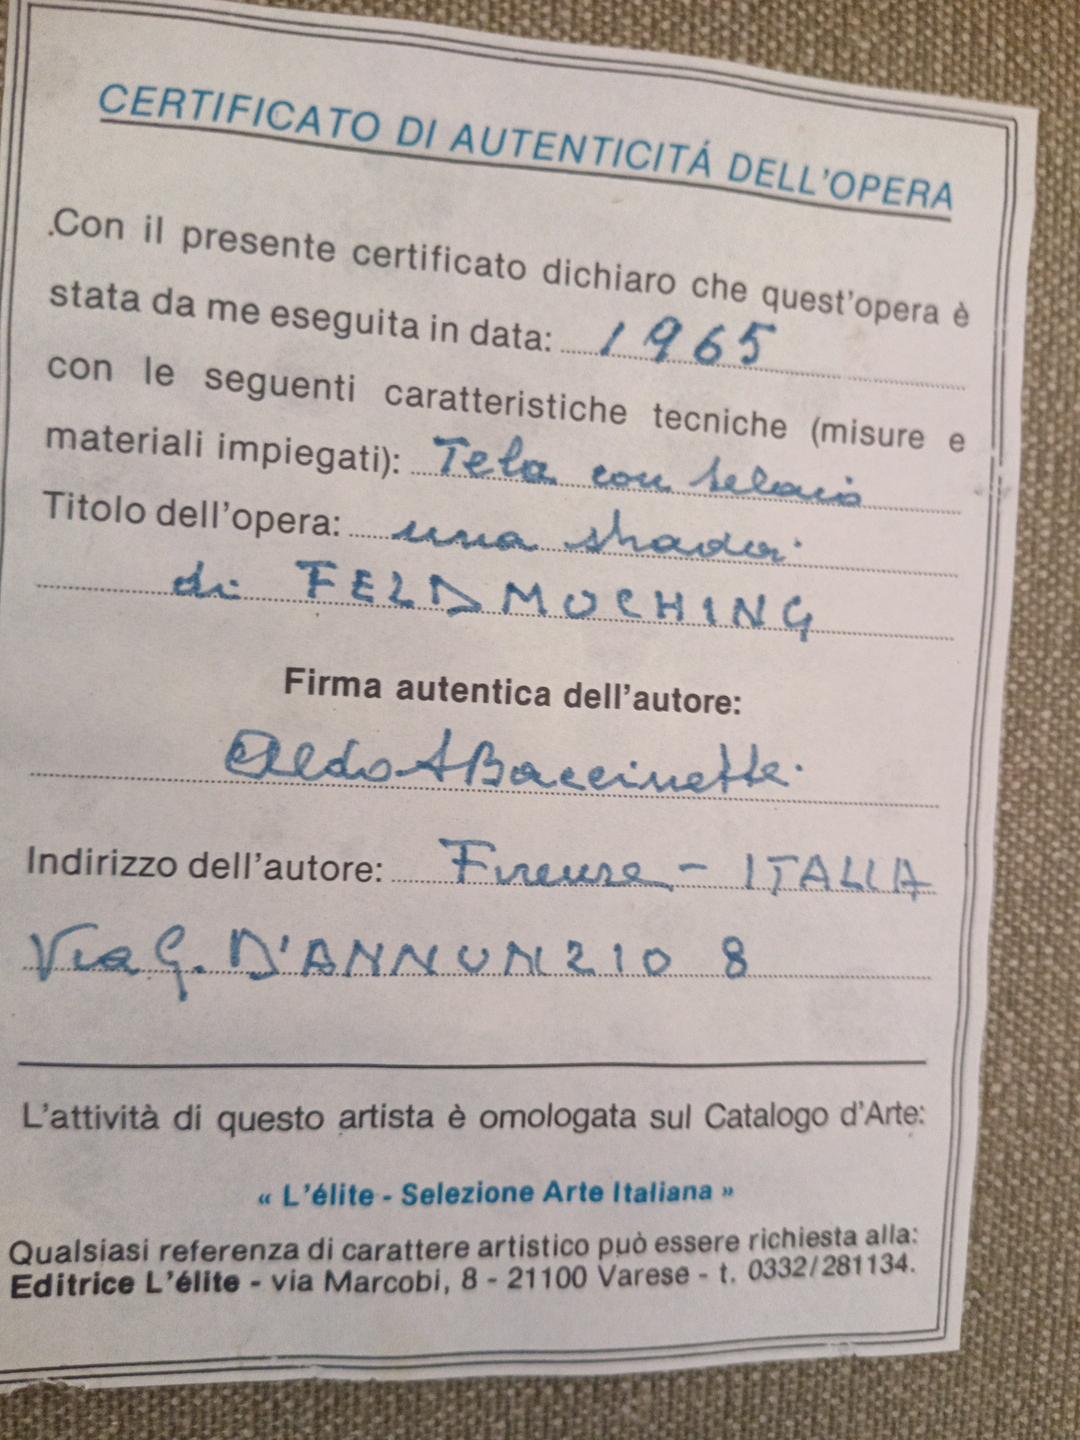 CERTIFICATO DI AUTENTICITÁ DELL'OPERA
.Con il presente certificato dichiaro che quest'opera è
stata da me eseguita in data: 1965
con le seguenti caratteristiche tecniche (misure e
materiali impiegati): Tela con telaio
Titolo dell'opera: una strada
di FELDMOCHING
Firma autentica dell'autore:
Aldo A Baccinetti
Indirizzo dell'autore: Firenze - ITALIA
Via G. D'ANNUNZIO 8
L'attività di questo artista è omologata sul Catalogo d'Arte:
« L'élite - Selezione Arte Italiana »
Qualsiasi referenza di carattere artistico può essere richiesta alla:
Editrice L'élite - via Marcobi, 8 - 21100 Varese - t. 0332/281134.